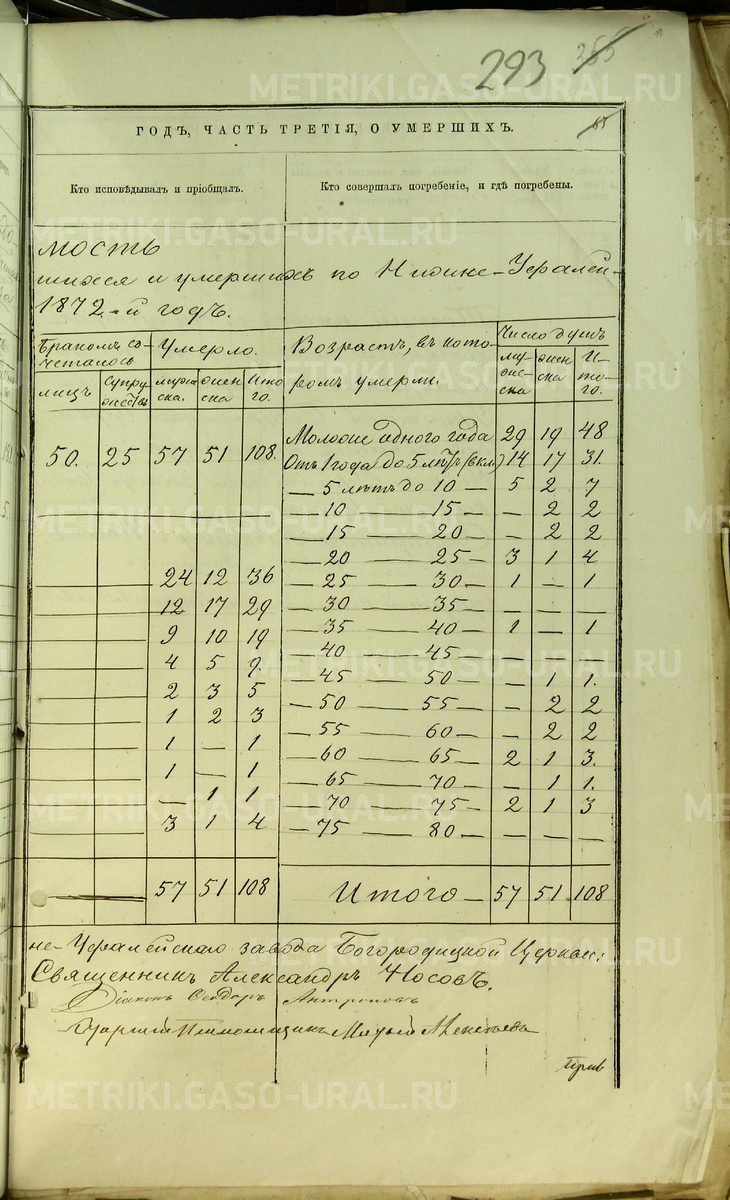 293 355
ГОДЪ, ЧАСТЬ ТРЕТІЯ, О УМЕРШИХЪ.
Кто исповѣдывалъ и пріобщалъ.
Кто совершалъ погребеніе, и гдѣ погребены.
мость
шихся и умершихъ по Нижне-Уфалей-
1872-й годъ.
Бракомъ со-
четалось
Умерло.
Возрастъ, въ кото-
ромъ умерли.
Число душъ
лицъ
Супру
жествъ
мужс
ска.
жен
ска
Ито
го.
му
жс-
ска
жен
ска
И-
то-
го.
50. 25 57 51 108. Моложе одного года 29 19 48
Отъ 1 года до 5 лѣтъ (вкл.) 14 17 31.
— 5 лѣтъ до 10 — 5 2 7
— 10 — 15 — — 2 2
— 15 — 20 — — 2 2
— 20 — 25 — 3 1 4
24 12 36 — 25 — 30 — 1 — 1
12 17 29 — 30 — 35 — — — —
9 10 19 — 35 — 40 — 1 — 1
4 5 9. — 40 — 45 — — — —
2 3 5 — 45 — 50 — — 1 1.
1 2 3 — 50 — 55 — — 2 2
1 — 1 — 55 — 60 — — 2 2
1 — 1 — 60 — 65 — 2 1 3.
— 1 1 — 65 — 70 — — 1 1.
3 1 4 — 70 — 75 — 2 1 3
— 75 — 80 — — — —
57 51 108 Итого — 57 51 108
не-Уфалейскаго завода Богородицкой Церкви:
Священникъ Александръ Носовъ.
Діаконъ Ѳеодоръ Антроповъ
METRIKI.GASO-URAL.RU